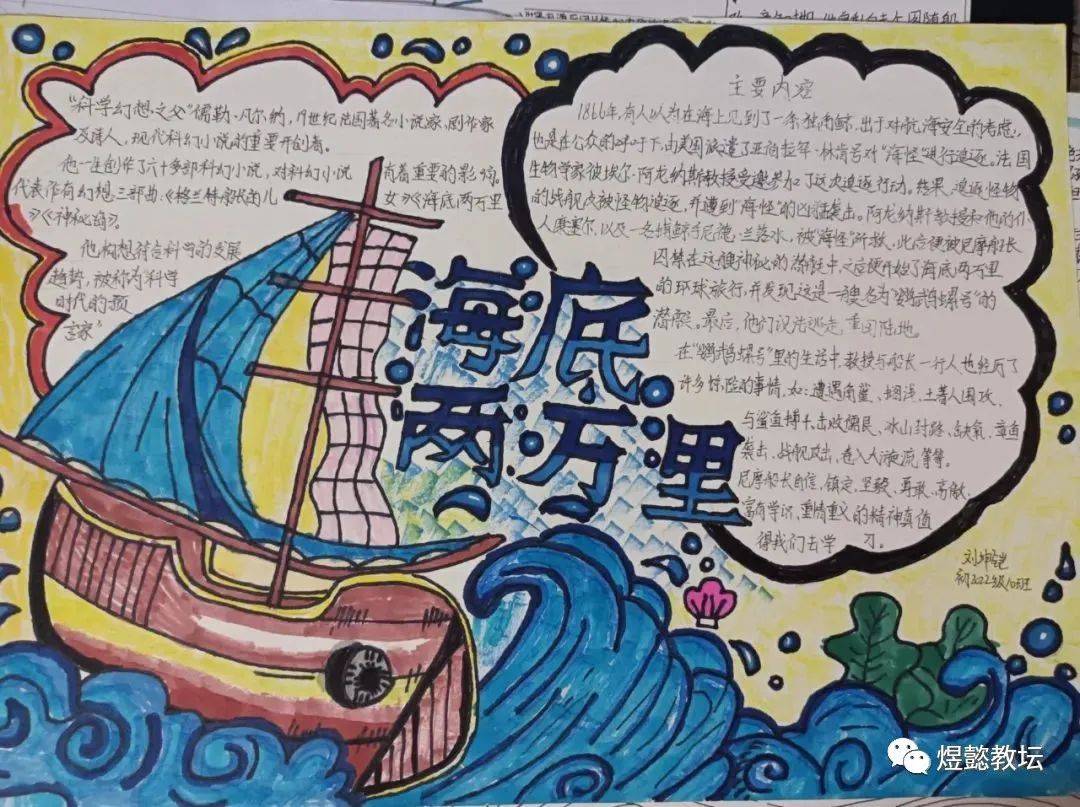 "科学幻想之父"儒勒·凡尔纳,19世纪法国著名小说家、剧作家
及诗人,现代科幻小说的重要开创者。
他一生创作了六十多部科幻小说,对科幻小说 有着重要的影响。
代表作有幻想三部曲:《格兰特船长的儿 女》《海底两万里
》《神秘岛》。
他构想符合科学的发展
趋势,被称为"科学
时代的预
言家"
海底
两万里
主要内容
1866年,有人以为在海上见到了一条独角鲸,出于对航海安全的考虑,
也是在公众的呼吁下,由美国派遣了亚伯拉罕·林肯号对"海怪"进行追逐。法国
生物学家彼埃尔·阿龙纳斯教授受邀参加了这次追逐行动。结果,追逐怪物
的战舰反被怪物追逐,并遭到"海怪"的凶猛袭击。阿龙纳斯教授和他的仆
人康塞尔,以及一名捕鲸手尼德·兰落水,被"海怪"所救,此后便被尼摩船长
囚禁在这艘神秘的潜艇中,之后便开始了海底两万里
的环球旅行,并发现这是一艘名为"鹦鹉螺号"的
潜艇。最后,他们设法逃走,重回陆地。
在"鹦鹉螺号"里的生活中,教授与船长一行人也经历了
许多惊险的事情,如:遭遇角鲨、搁浅、土著人围攻、
与鲨鱼搏斗、击败儒艮、冰山封路、缺氧、章鱼
袭击、战舰攻击、卷入大漩流等等。
尼摩船长自信、镇定、坚毅、勇敢、高傲、
富有学识、重情重义的精神真值
得我们去学 习。
初2022级10班
煜懿教坛